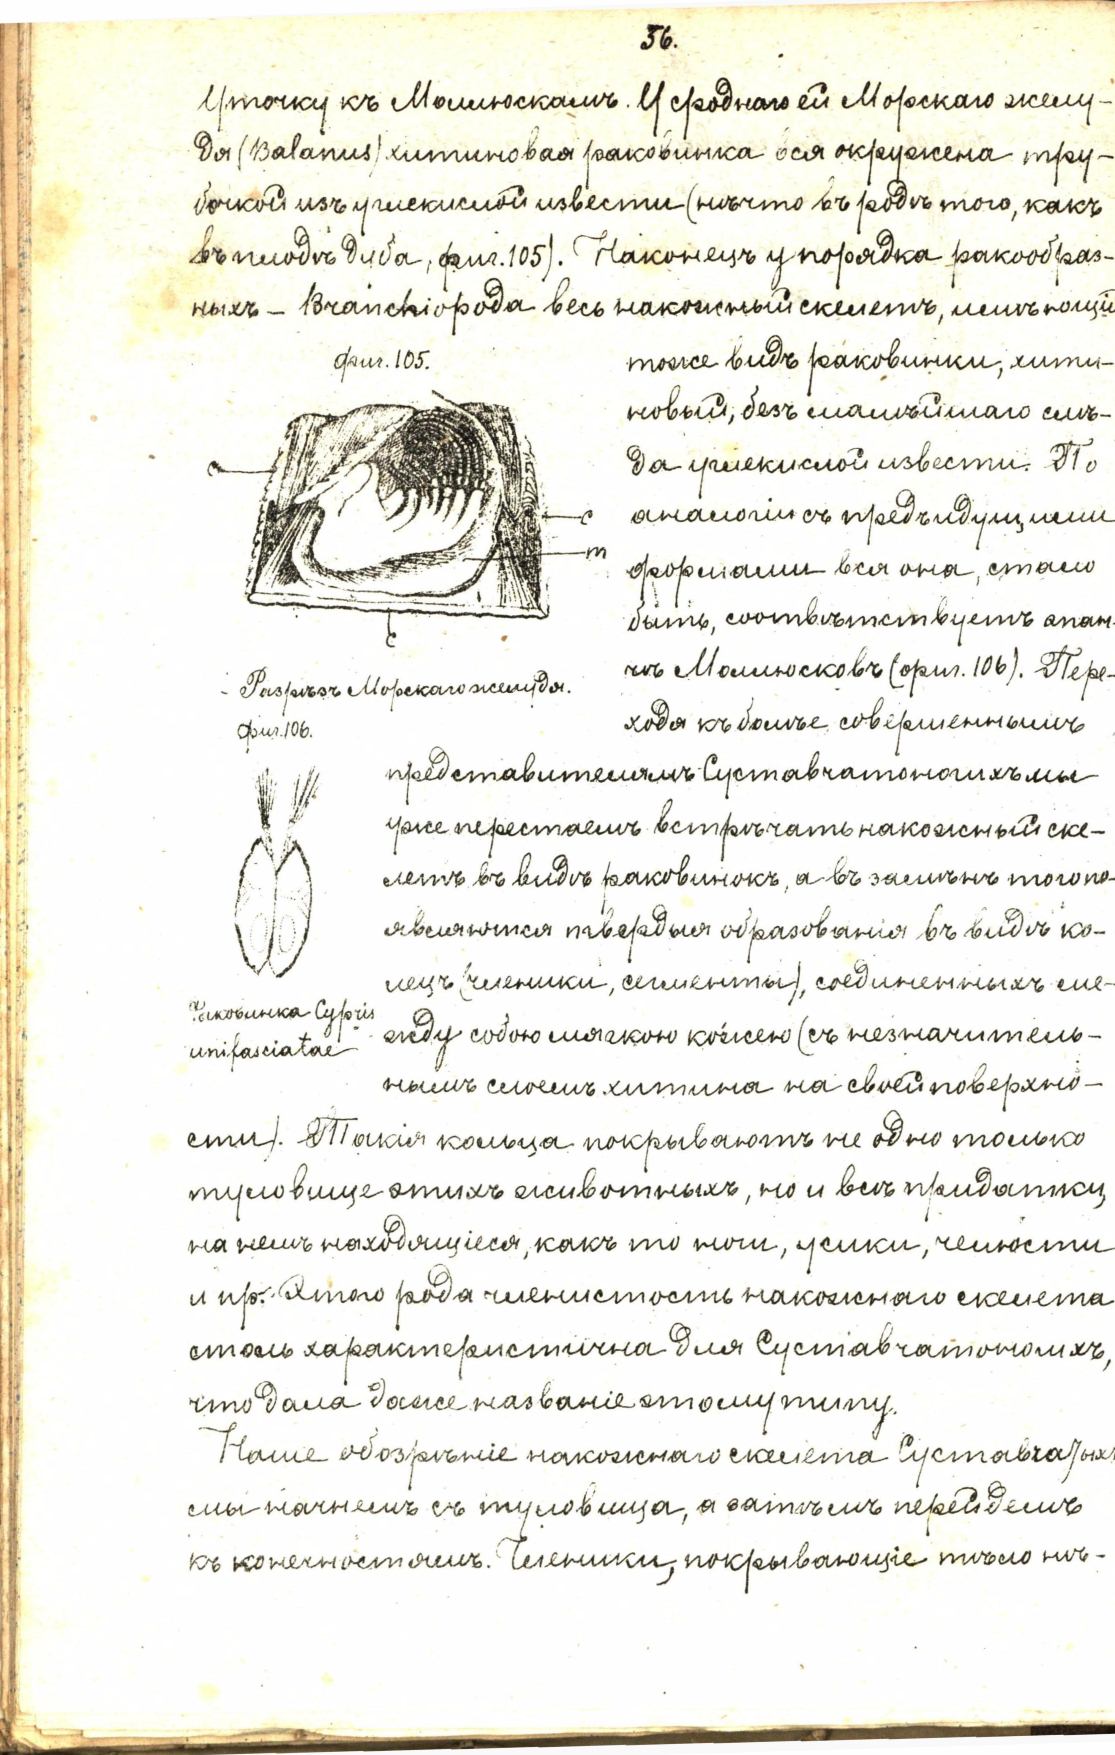 56.
Уточку къ Моллюскамъ. У сроднаго ей Морскаго желу-
дя (Balanus) хитиновая раковинка вся окружена тру-
бочкой изъ углекислой извести (нѣчто въ родѣ того, какъ
въ плодѣ дуба, фиг. 105). Наконецъ у порядка ракообраз-
ныхъ – Branchiopoda весь накожный скелетъ, имѣющій
фиг. 105.
тоже видъ раковинки, хити-
новый, безъ малѣйшаго слѣ-
да углекислой извести. По
аналогіи съ предъидущими
формами вся она, стало
быть, соотвѣтствуетъ эпан-
чѣ Моллюсковъ (фиг. 106). Пере-
ходя къ болѣе совершеннымъ
a
c
m
c
Разрѣзъ Морскаго желудя.
Фиг. 106.
представителямъ Суставчатоногихъ мы
уже перестаемъ встрѣчать накожный ске-
летъ въ видѣ раковинокъ, а въ замѣнъ того по-
являются твердыя образованія въ видѣ ко-
лецъ (членики, сегменты), соединенныхъ ме-
жду собою мягкою кожею (съ незначитель-
нымъ слоемъ хитина на своей поверхно-
Раковинка Cypris
unifasciatae
сти). Такія кольца покрываютъ не одно только
туловище этихъ животныхъ, но и всѣ придатки,
на немъ находящіеся, какъ то ноги, усики, челюсти
и пр. Этого рода членистость накожнаго скелета
столь характеристична для Суставчатоногихъ,
что дала даже названіе этому типу.
Наше обозрѣніе накожнаго скелета Суставчатыхъ
мы начнемъ съ туловища, а затѣмъ перейдемъ
къ конечностямъ. Членики, покрывающіе тѣло нѣ-